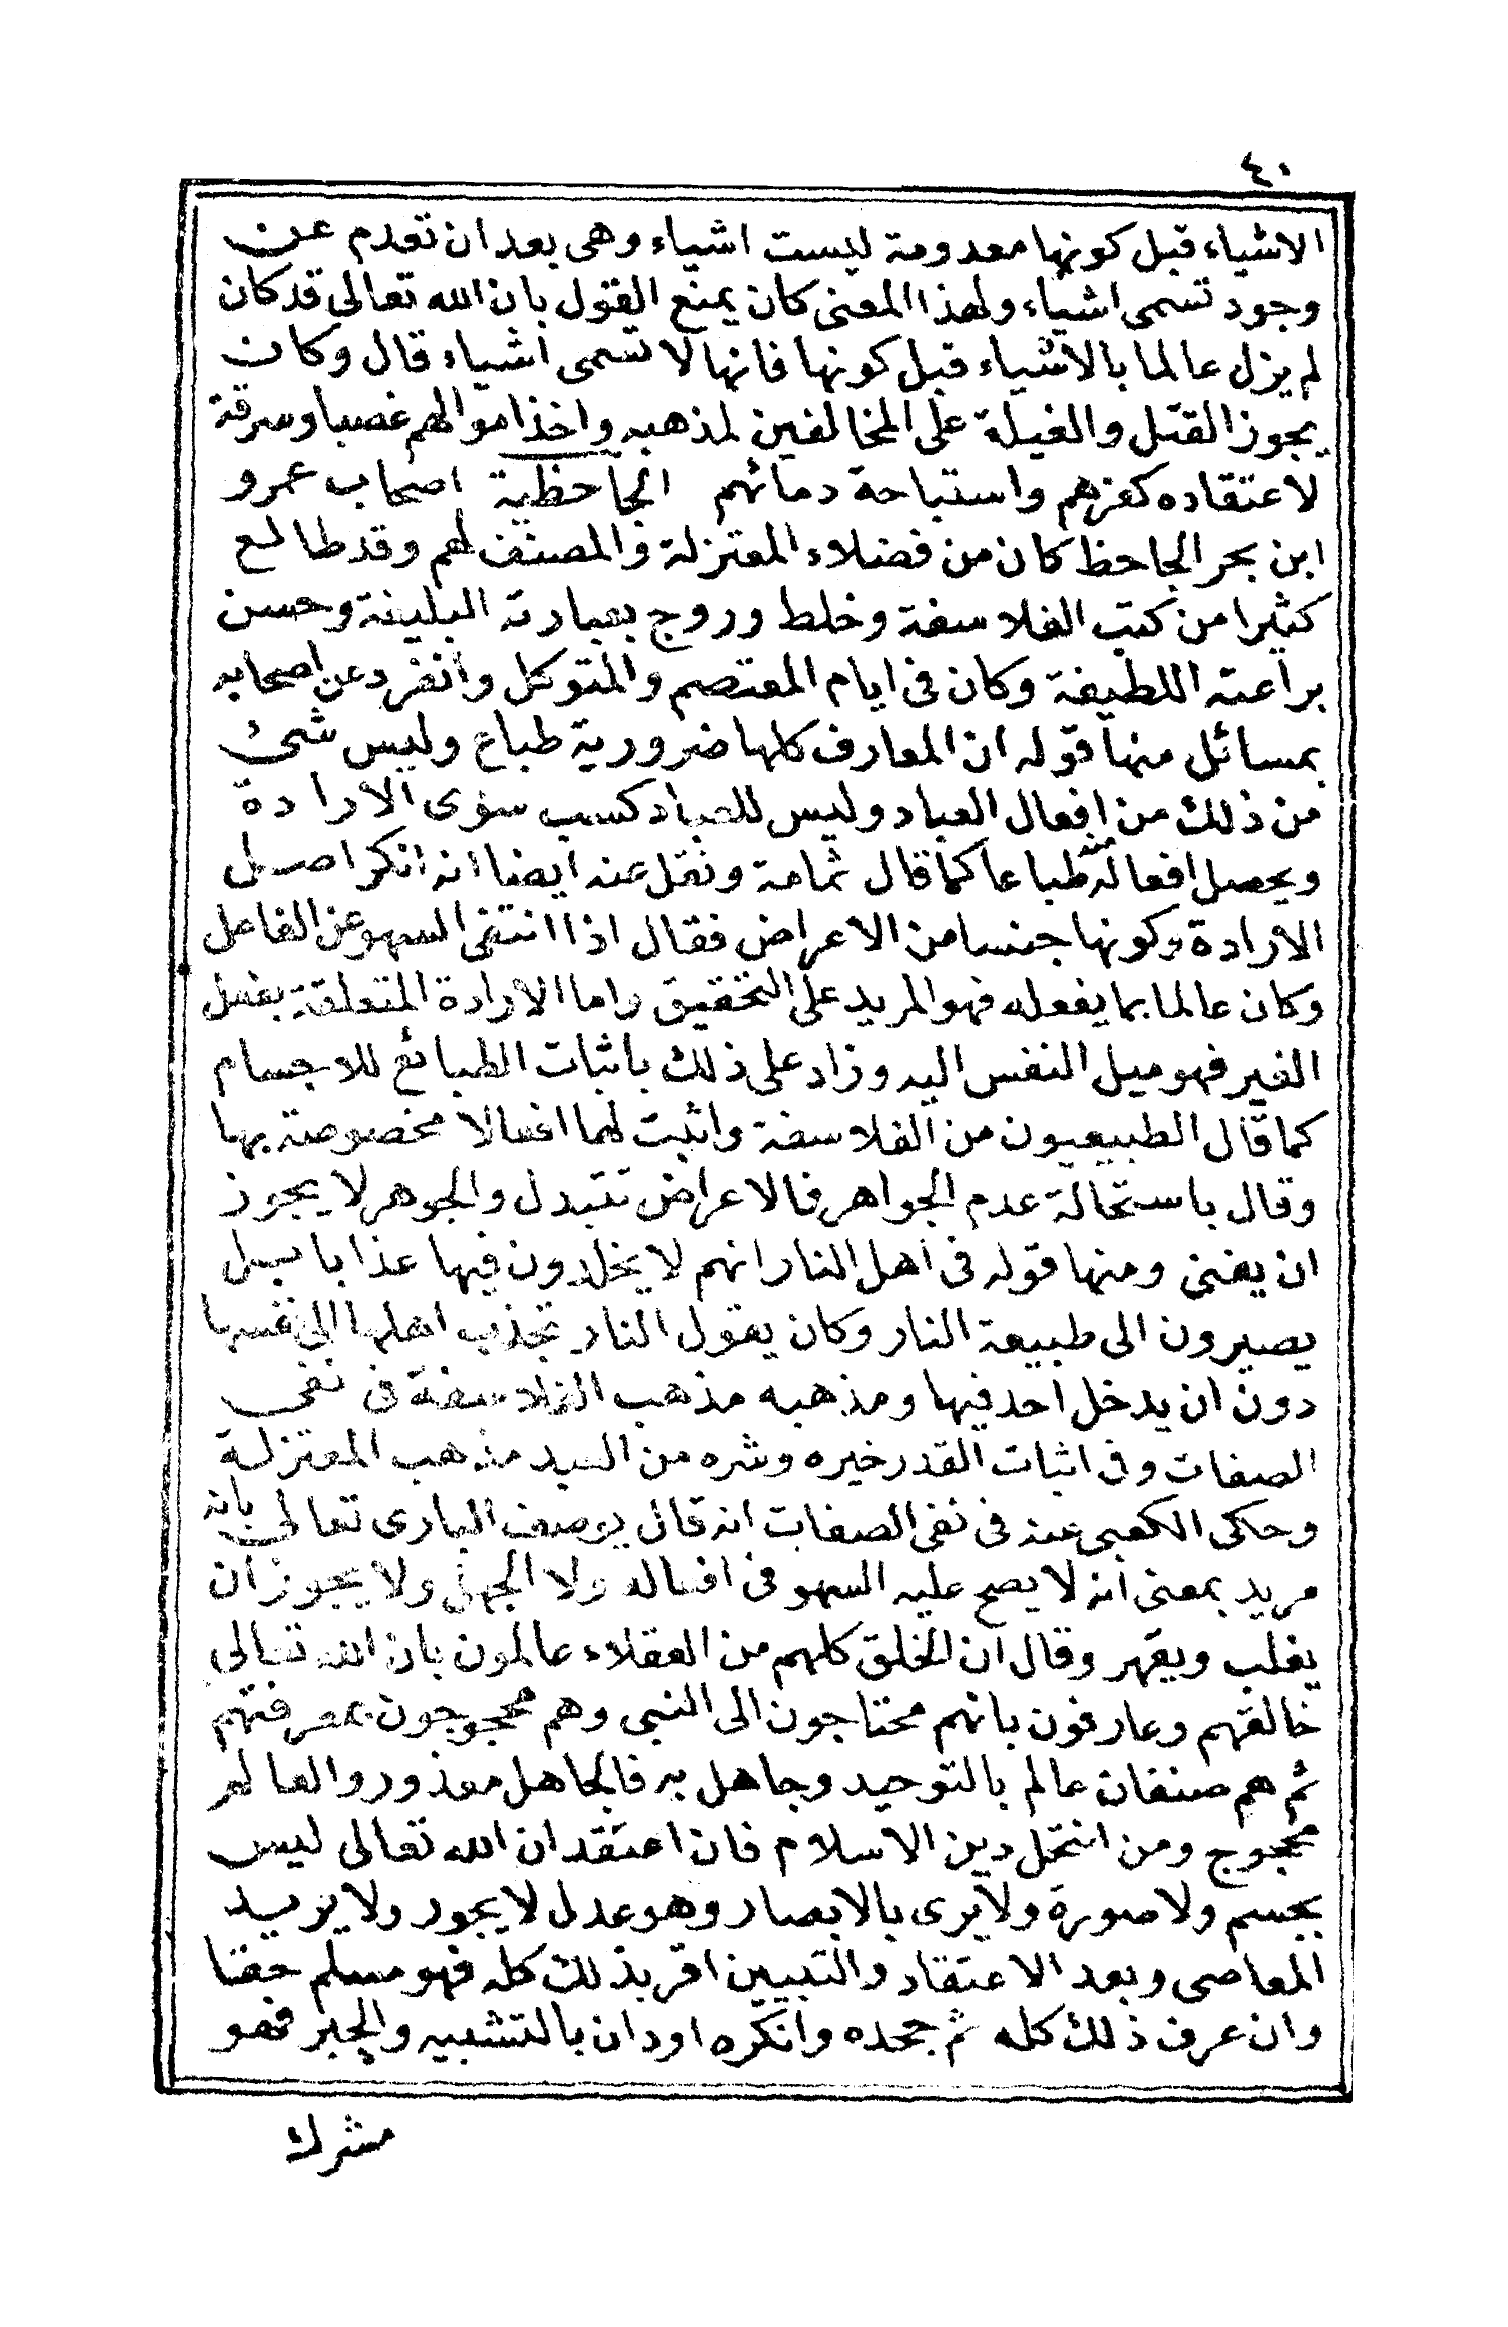 ٤٠
الاشياء قبل كونها معدومة ليست اشياء وهى بعد ان تعدم عن
وجود تسمى اشياء ولهذا المعنى كان يمنع القول بان الله تعالى قد كان
لم يزل عالما بالاشياء قبل كونها فانها لا تسمى اشياء قال وكان
يجوز القتل والغيلة على المخالفين لمذهبه واخذ اموالهم غصبا وسرقة
لاعتقاده كفرهم واستباحة دمائهم الجاحظية اصحاب عمرو
ابن بحر الجاحظ كان من فضلاء المعتزلة والمصنف لهم وقد طالع
كثيرا من كتب الفلاسفة وخلط وروج بعبارته البليغة وحسن
براعته اللطيفة وكان فى ايام المعتصم والمتوكل وانفرد عن اصحابه
بمسائل منها قوله ان المعارف كلها ضرورية طباع وليس شئ
من ذلك من افعال العباد وليس للعباد كسب سوى الارادة
ويحصل افعاله طباعا كما قال ثمامة ونقل عنه ايضا انه انكر اصل
الارادة وكونها جنسا من الاعراض فقال اذا انتفى السهو عن الفاعل
وكان عالما بما يفعله فهو المريد على التحقيق واما الارادة المتعلقة بفعل
الغير فهو ميل النفس اليه وزاد على ذلك باثبات الطبائع للاجسام
كما قال الطبيعيون من الفلاسفة واثبت لهما افعالا مخصوصة بها
وقال باستحالة عدم الجواهر فالاعراض تتبدل والجوهر لا يجوز
ان يفنى ومنها قوله فى اهل النار انهم لا يخلدون فيها عذابا بل
يصيرون الى طبيعة النار وكان يقول النار تجذب اهلها الى نفسها
دون ان يدخل احد فيها ومذهبه مذهب الفلاسفة فى نفى
الصفات وفى اثبات القدر خيره وشره من العبد مذهب المعتزلة
وحكى الكعبى عنه فى نفى الصفات انه قال يوصف البارى تعالى بانه
مريد بمعنى انه لا يصح عليه السهو فى افعاله ولا الجهل ولا يجوز ان
يغلب ويقهر وقال ان الخلق كلهم من العقلاء عالمون بان الله تعالى
خالقهم وعارفون بانهم محتاجون الى النبى وهم محجوجون بمعرفتهم
ثم هم صنفان عالم بالتوحيد وجاهل به فالجاهل معذور والعالم
محجوج ومن انتحل دين الاسلام فان اعتقد ان الله تعالى ليس
بجسم ولا صورة ولا يرى بالابصار وهو عدل لا يجور ولا يريد
المعاصى وبعد الاعتقاد والتبيين اقر بذلك كله فهو مسلم حقا
وان عرف ذلك كله ثم جحده وانكره او دان بالتشبيه والجبر فهو
مشرك